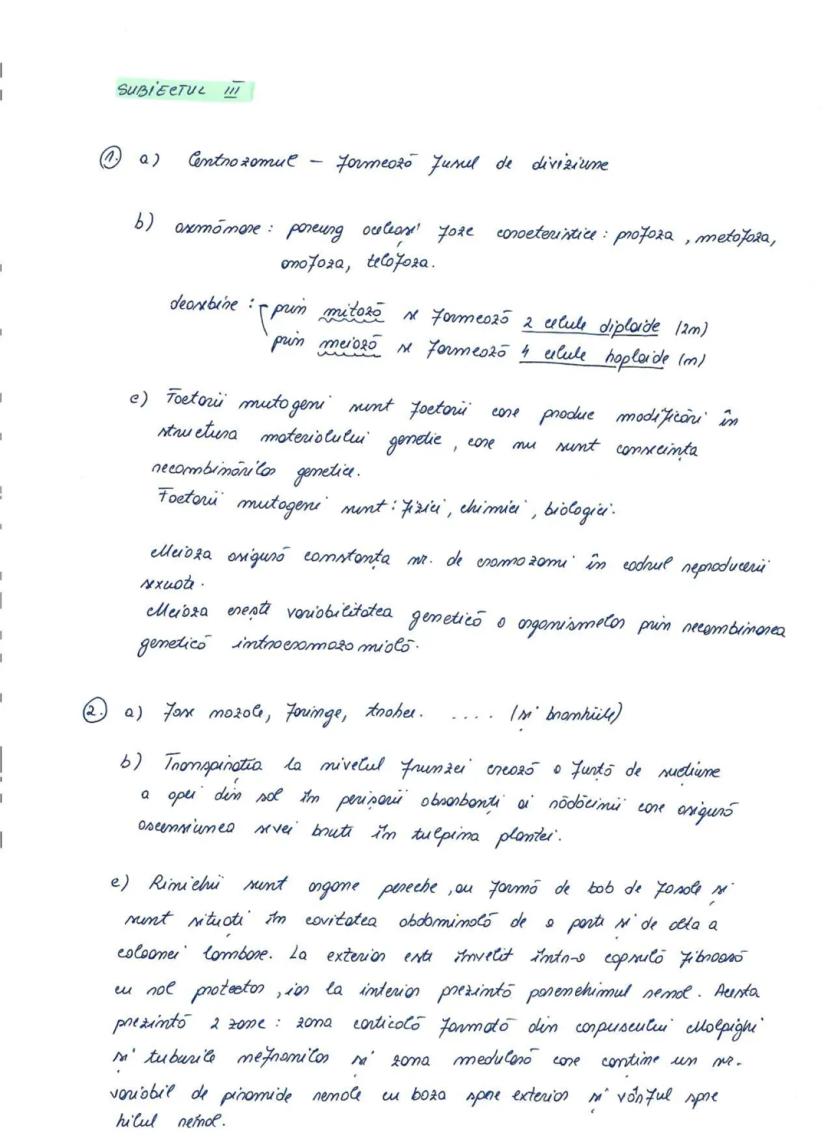 SUBIECTUL III
1. a) Centrozomul – formează fusul de diviziune
b) asemănare: parcurg aceleași faze caracteristice: profaza, metafaza,
anafaza, telofaza.
deosebire: prin mitoză se formează 2 celule diploide (2n)
prin meioză se formează 4 celule haploide (n)
c) Factorii mutageni sunt factorii care produc modificări în
structura materialului genetic, care nu sunt consecința
recombinărilor genetice.
Factorii mutageni sunt: fizici, chimici, biologici.
Meioza asigură constanța nr. de cromozomi în cadrul reproducerii
sexuate.
Meioza crește variabilitatea genetică a organismelor prin recombinarea
genetică intracromozomială.
2. a) Fose nazale, faringe, trahee. .... (și branhiile)
b) Transpirația la nivelul frunzei crează o forță de sucțiune
a apei din sol în perișorii absorbanți ai rădăcinii care asigură
ascensiunea sevei brute în tulpina plantei.
c) Rinichii sunt organe pereche, au formă de bob de fasole și
sunt situați în cavitatea abdominală de o parte și de alta a
coloanei lombare. La exterior este învelit într-o capsulă fibroasă
cu rol protector, iar la interior prezintă parenchimul renal. Acesta
prezintă 2 zone: zona corticală formată din corpusculii Malpighi
și tuburile nefronilor și zona medulară care conține un nr.
variabil de piramide renale cu baza spre exterior și vârful spre
hilul renal.